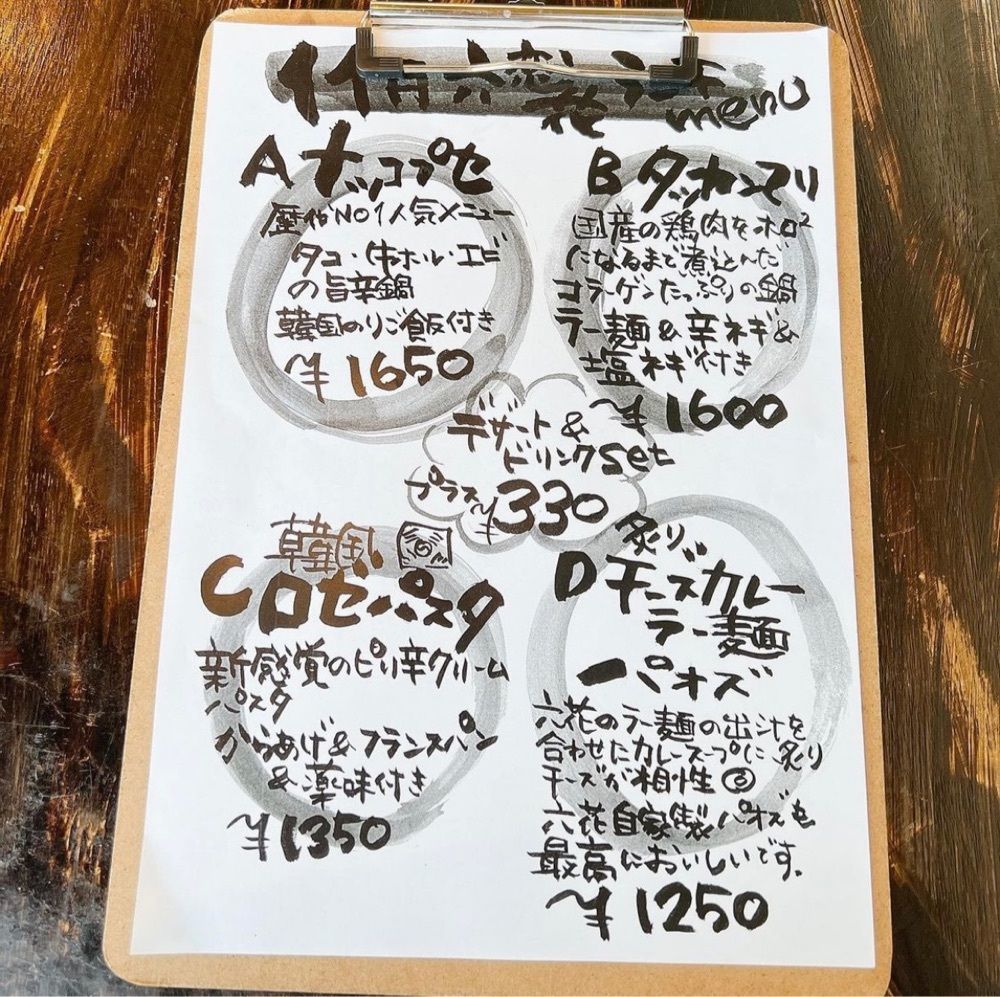 六花 ランチ
menu
A ナッコプセ
歴代NO1人気メニュー
タコ・牛ホル・エビ
の旨辛鍋
韓国のりご飯付き
¥1650
B タッカンマリ
国産の鶏肉をホロ²
になるまで煮込んだ
コラーゲンたっぷりの鍋
ラー麺&辛ネギ&
塩ネギ付き
¥1600
デザート&
ドリンクset
プラス¥330
韓国
C ロゼパスタ
新感覚のピリ辛クリーム
パスタ
からあげ&フランスパン
&薬味付き
¥1350
炙り
D チーズカレー
ラー麺
パオズ
六花のラー麺の出汁を
合わせたカレースープに炙り
チーズが相性◎
六花自家製パオズも
最高においしいです。
¥1250